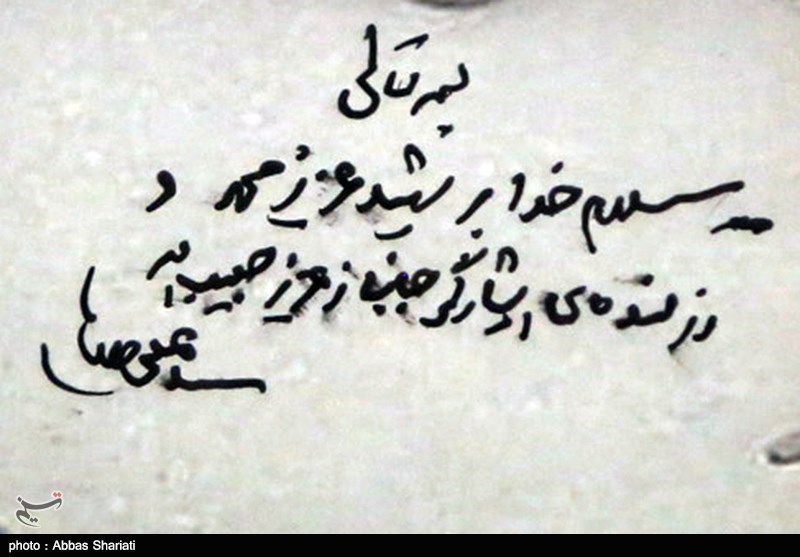 بسمه تعالی
سلام خدا بر شهید عزیز محمد و
رزمنده‌ی ایثارگر جانباز عزیز حبیب الله
سید
تسنیم
photo : Abbas Shariati